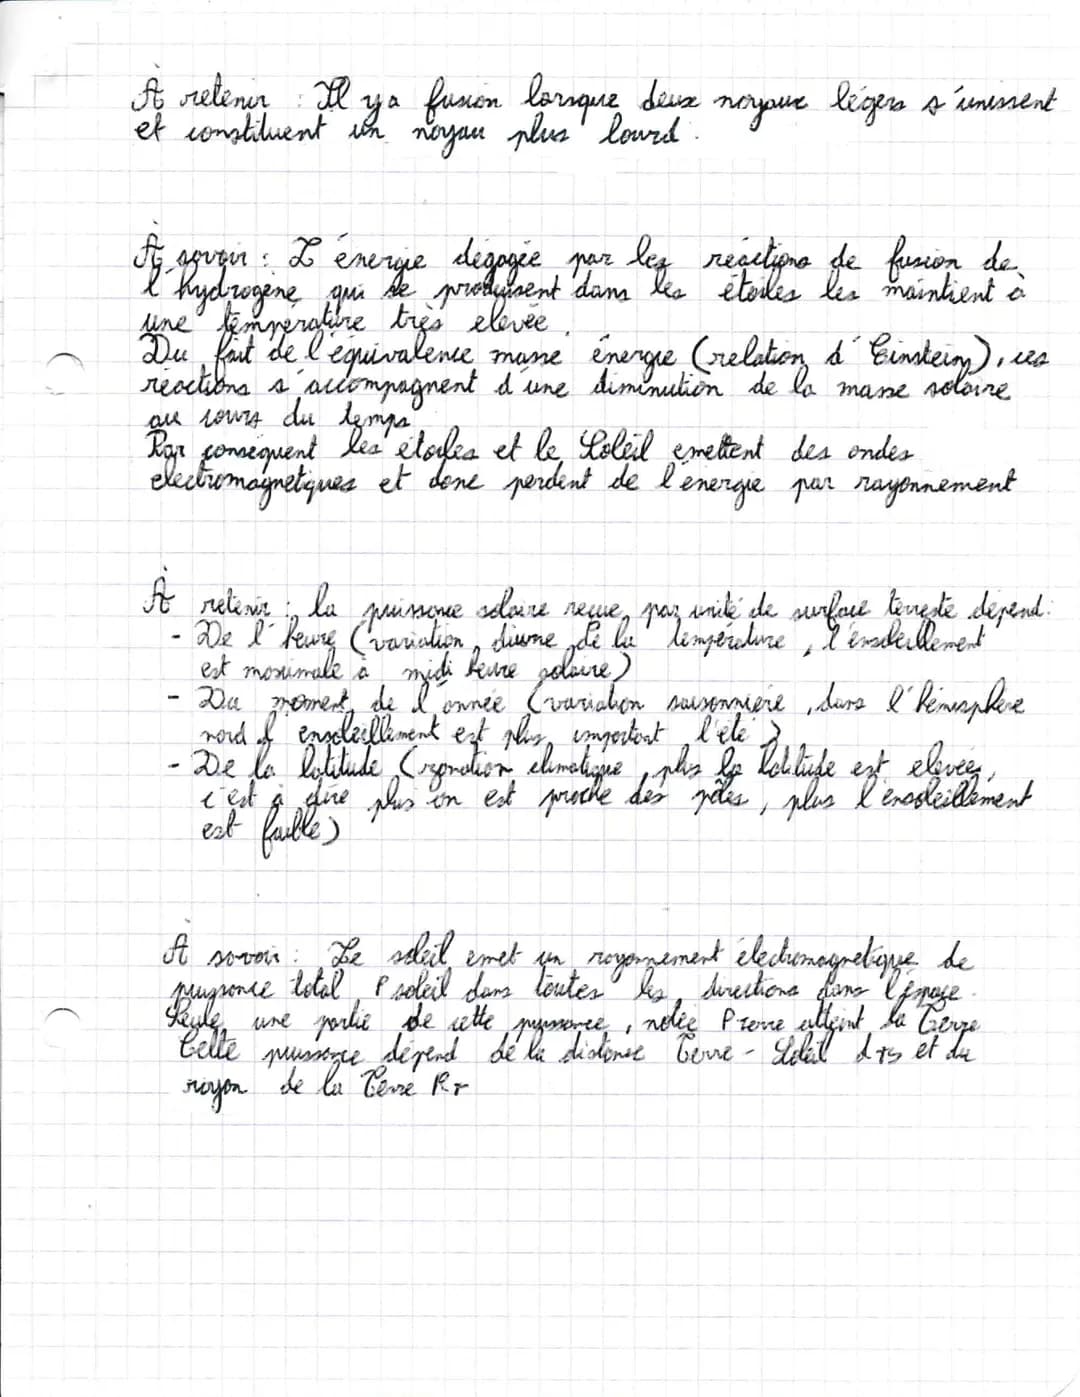 À retenir : Il y a fusion lorsque deux noyaux légers s'unissent
et constituent un noyau plus lourd.
À savoir : L'énergie dégagée par les réactions de fusion de
l'hydrogène qui se produisent dans les étoiles les maintient à
une température très élevée.
Du fait de l'équivalence masse énergie (relation d'Einstein), ces
réactions s'accompagnent d'une diminution de la masse solaire
au cours du temps
Par conséquent les étoiles et le Soleil emettent des ondes
electromagnétiques et donc perdent de l'énergie par rayonnement
À retenir : la puissance solaire reçue, par unité de surface terreste dépend :
- De l'heure (variation diurne de la température, l'ensoleillement
est maximale à midi heure solaire)
- Du moment de l'année (variation saisonnière, dans l'hémisphère
nord l'ensoleillement est plus important l'été)
- De la latitude (zonation climatique, plus la latitude est elevée,
c'est à dire plus on est proche des pôles, plus l'ensoleillement
est faible)
À savoir : Le soleil emet un rayonnement électromagnetique de
puissance total P soleil dans toutes les directions dans l'espace.
Seule une partie de cette puissance, notée P terre atteint la Terre
Cette puissance dépend de la distance Terre - Soleil dTS et du
rayon de la Terre RT